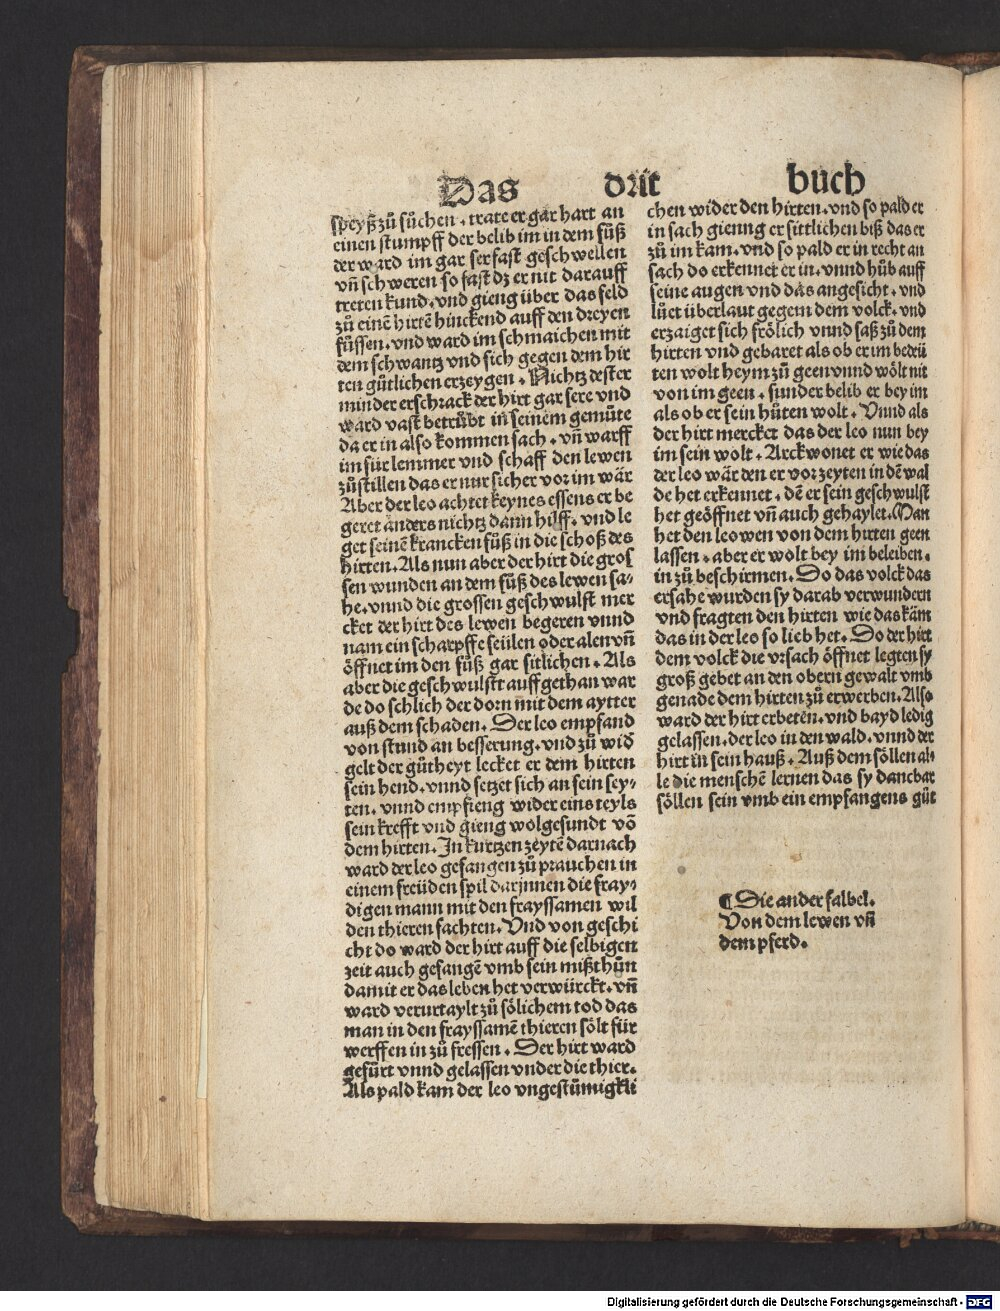 Das drit buch
speyß zů sůchen . trate er gar hart an
einen stumpff der belib im in dem fůß
der ward im gar ser fast geschwellen
vñ schweren so fast dz er nit darauff
treten kund . vnd gieng über das feld
zů einẽ hirtẽ hinckend auff den dreyen
füssen . vnd ward im schmaichen mit
dem schwantz vnd sich gegen dem hir
ten gůtlichen erzeygen . Nichtz dester
minder erschrack der hirt gar sere vnd
ward vast betrůbt in seinem gemůte
da er in also kommen sach . vñ warff
im für lemmer vnd schaff den lewen
zůstillen das er nur sicher vor im wär
Aber der leo achtet keynes essens er be
geret anders nichtz dann hilff . vnd le
get seinẽ krancken fůß in die schoß des
hirten . Als nun aber der hirt die gros
sen wunden an dem fůß des lewen sa-
he . vnnd die grossen geschwulst mer
cket der hirt des lewen begeren vnnd
nam ein scharpffe seülen oder alen vñ
öffnet im den fůß gar sitlichen . Als
aber die geschwulstt auffgethan war
de do schlich der dorn mit dem aytter
auß dem schaden . Der leo empfand
von stund an besserung . vnd zů wid
gelt der gůtheyt lecket er dem hirten
sein hend . vnnd setzet sich an sein sey-
ten . vnnd empfieng wider eins teyls
sein krefft vnd gieng wolgesundt võ
dem hirten . In kurtzen zeytẽ darnach
ward der leo gefangen zů prauchen in
einem freüden spil darjnnen die fray-
digen mann mit den frayssamen wil
den thieren fachten . Vnd von geschi
cht do ward der hirt auff die selbigen
zeit auch gefangẽ vmb sein mißthůn
damit er das leben het verwürckt . vñ
ward verurtaylt zů sölichem tod das
man in den frayssamẽ thieren sölt für
werffen in zů fressen . Der hirt ward
gefürt vnnd gelassen vnder die thier .
Als pald kam der leo vngestümigkli
chen wider den hirten . vnd so pald er
in sach gienng er sittlichen biß das er
zů im kam . vnd so pald er in recht an
sach do erkennet er in . vnnd hůb auff
seine augen vnd das angesicht . vnd
lůet überlaut gegem dem volck . vnd
erzaiget sich frölich vnnd saß zů dem
hirten vnd gebaret als ob er im bedeü
ten wolt heym zů geen vnnd wölt nit
von im geen . sunder belib er bey im
als ob er sein hůten wolt . Vnnd als
der hirt mercket das der leo nun bey
im sein wolt . Arckwonet er wie das
der leo wär den er vor zeyten in dẽ wal
de het erkennet . dẽ er sein geschwulst
het geöffnet vñ auch gehaylet . Man
het den leowen von dem hirten geen
lassen . aber er wolt bey im beleiben .
in zů beschirmen . Do das volck das
ersahe wurden sy darab verwundern
vnd fragten den hirten wie das käm
das in der leo so lieb het . Do der hirt
dem volck die vrsach öffnet legten sy
groß gebet an den obern gewalt vmb
genade dem hirten zů erwerben . Also
ward der hirt erbeten . vnd bayd ledig
gelassen . der leo in den wald . vnnd der
hirt in sein hauß . Auß dem söllen al-
le die menschẽ lernen das sy danckbar
söllen sein vmb ein empfangens gůt
¶ Die ander fabel .
Von dem lewen vñ
dem pferd .
Digitalisierung gefördert durch die Deutsche Forschungsgemeinschaft - DFG